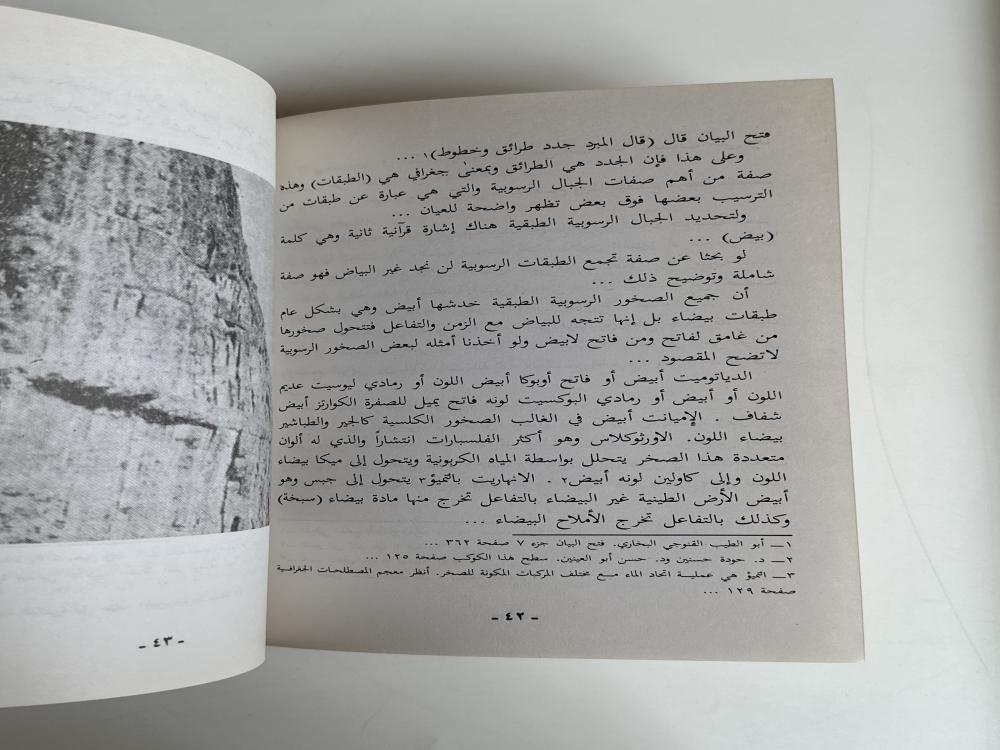 فتح البيان قال (قال المبرد جدد طرائق وخطوط)١ ...
وعلى هذا فإن الجدد هي الطرائق وبمعنى جغرافي هي (الطبقات) وهذه
صفة من أهم صفات الجبال الرسوبية والتي هي عبارة عن طبقات من
الترسيب بعضها فوق بعض تظهر واضحة للعيان ...
ولتحديد الجبال الرسوبية الطبقية هناك إشارة قرآنية ثانية وهي كلمة
(بيض) ...
لو بحثا عن صفة تجمع الطبقات الرسوبية لن نجد غير البياض فهو صفة
شاملة وتوضيح ذلك ...
أن جميع الصخور الرسوبية الطبقية خدشها أبيض وهي بشكل عام
طبقات بيضاء بل إنها تتجه للبياض مع الزمن والتفاعل فتتحول صخورها
من غامق لفاتح ومن فاتح لابيض ولو أخذنا أمثله لبعض الصخور الرسوبية
لاتضح المقصود ...
الدياتوميت أبيض أو فاتح أوبوكا أبيض اللون أو رمادي ليوسيت عديم
اللون أو أبيض أو رمادي البوكسيت لونه فاتح يميل للصفرة الكوارتز أبيض
شفاف . الإميانت أبيض في الغالب الصخور الكلسية كالجير والطباشير
بيضاء اللون. الاورثوكلاس وهو أكثر الفلسبارات انتشاراً والذي له ألوان
متعددة هذا الصخر يتحلل بواسطة المياه الكربونية ويتحول إلى ميكا بيضاء
اللون وإلى كاولين لونه أبيض٢ . الانهاريت بالتميؤ٣ يتحول إلى جبس وهو
أبيض الأرض الطينية غير البيضاء بالتفاعل تخرج منها مادة بيضاء (سبخة)
وكذلك بالتفاعل تخرج الأملاح البيضاء ...
١ــ أبو الطيب القنوجي البخاري. فتح البيان جزء ٧ صفحة ٣٦٢ ...
٢ــ د. جودة حسنين ود. حسن أبو العينين. سطح هذا الكوكب صفحة ١٢٥ ...
٣ــ التميؤ هي عملية اتحاد الماء مع مختلف المركبات المكونة للصخر. أنظر معجم المصطلحات الجغرافية
صفحة ١٢٩ ...
- ٤٢ -
- ٤٣ -